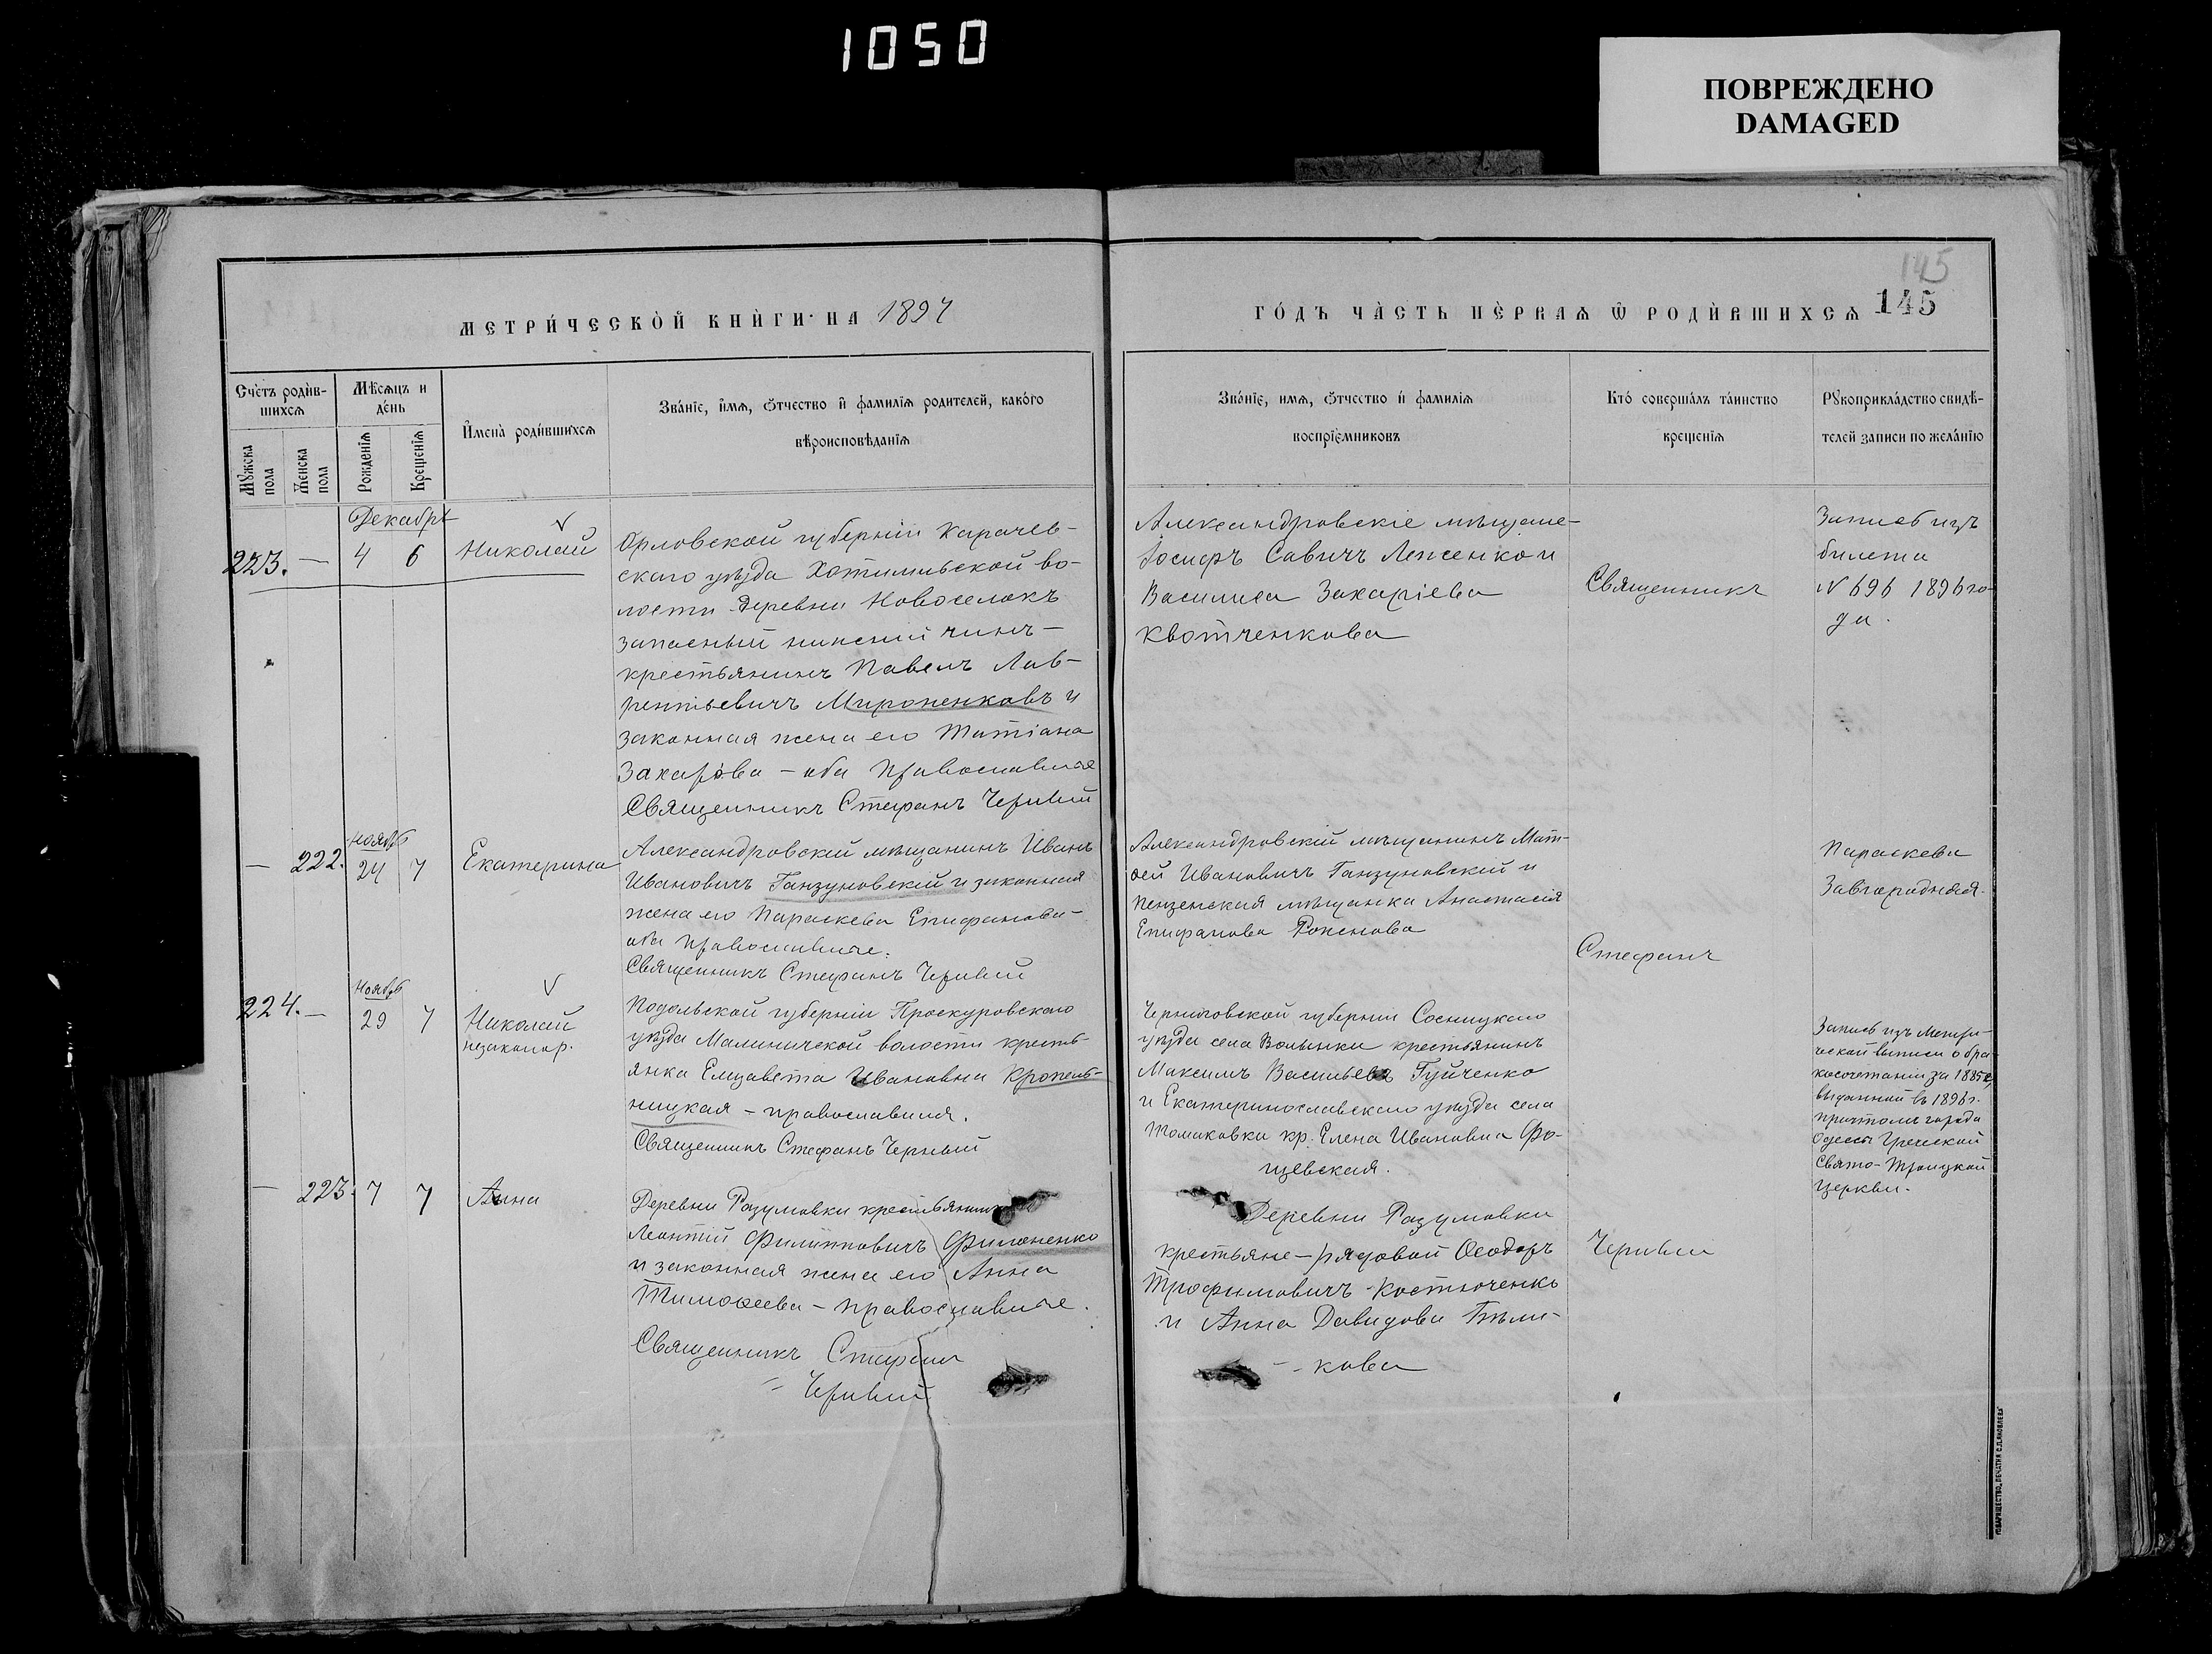 1050
ПОВРЕЖДЕНО
DAMAGED
145
МЕТРИ́ЧЕСКОЙ КНИ́ГИ НА 1897
ГО́ДЪ ЧА́СТЬ ПЕ́РВАѦ Ѿ РОДИ́ВШИХСѦ 145
Сче́тъ роди́в-
шихсѧ
Мꙋ́жска пола
Же́нска пола
Мѣ́сѧцъ и
де́нь
Рожде́нїѧ
Креще́нїѧ
И҆мена̀ роди́вшихсѧ
Зва́нїе, и҆́мѧ, ѻ҆́тчество и҆ фами́лїѧ роди́телей, како́гѡ
вѣроисповѣ́данїѧ
Зва́нїе, имѧ, ѻ҆́тчество и҆ фами́лїѧ
воспрїе́мниковъ
Кто̀ соверша́лъ та́инство
креще́нїѧ
Рꙋкоприкла́дство свидѣ́-
телей за́писи по жела́нїю
Декабрь
223. — 4 6 Николай
Орловской губерніи Карачев-
скаго уѣзда Хотимльской во-
лости деревни Новоселокъ
запасный нижній чинъ —
крестьянинъ Павелъ Лав-
рентьевичъ Мироненковъ и
законная жена его Татіана
Захарова — оба православные
Священникъ Стефанъ Черный
Александровскіе мѣщане —
Іосифъ Савичъ и
Василиса Захаріева
Квотченкова
Священникъ
Запись изъ
билета
N 696 1896 го-
да.
Ноябрь
— 222. 24 7 Екатерина
Александровскій мѣщанинъ Иванъ
Ивановичъ Ганзуновскій и законная
жена его Параскева Епифанова —
оба православные.
Священникъ Стефанъ Черный
Александровскій мѣщанинъ Мат-
ѳей Ивановичъ Ганзуновскій и
пензенская мѣщанка Анастасія
Епифанова
Стефанъ
Параскева
Завгородняя.
Ноябрь
224. — 29 7 Николай
незаконор.
Подольской губерніи Проскуровскаго
уѣзда Малиничской волости кресть-
янка Елизавета Ивановна Кропель-
ницкая — православная.
Священникъ Стефанъ Черный
Черниговской губерніи Сосницкаго
уѣзда села Волынки крестьянинъ
Максимъ Васильевъ Гуйченко
и Екатеринославскаго уѣзда села
Томаковки кр. Елена Ивановна Фо-
щевская.
Запись изъ Метри-
ческой выписи о бра-
косочетаніи за 1885 г,
выданной въ 1896 г.
причтомъ города
Одессы Греческой
Свято-Троицкой
церкви.
— 223. 7 7 Анна
Деревни Разумовки крестьянинъ
Леонтій Филипповичъ Филоненко
и законная жена его Анна
Тимоѳеева — православные.
Священникъ Стефанъ
Черный
Деревни Разумовки
крестьяне — рядовой Ѳеодоръ
Трофимовичъ Костюченко
и Анна Давидова Бѣли-
кова
Черный
ТОВАРИЩЕСТВО „ПЕЧАТНЯ С.П.ЯКОВЛЕВА“